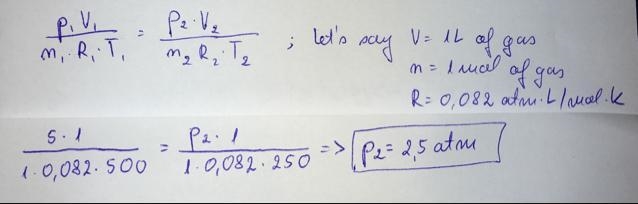 p₁V₁ / n₁·R₁·T₁ = P₂·V₂ / n₂R₂·T₂ ; let's say V= 1L of gas
n = 1 mol of gas
R= 0,082 atm·L/mol·k
5·1 / 1·0,082·500 = P₂·1 / 1·0,082·250 => P₂= 2,5 atm